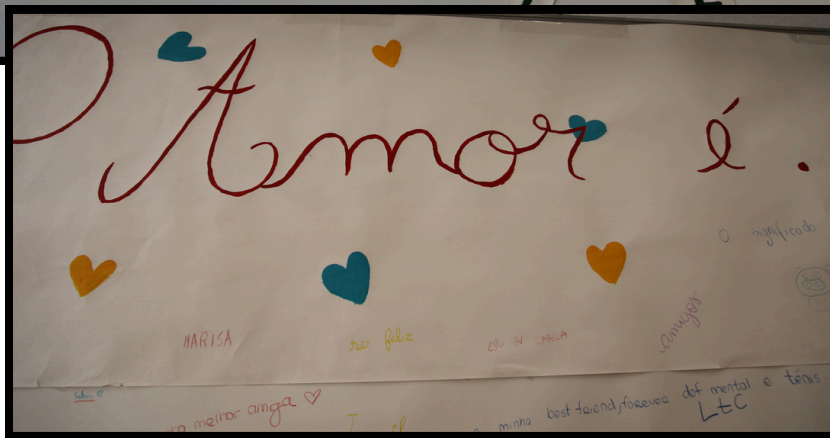 O Amor é.
O significado
MARISA
ser feliz
amigos
melhor amiga
minha best friend, forever def mental e ténis
LtC